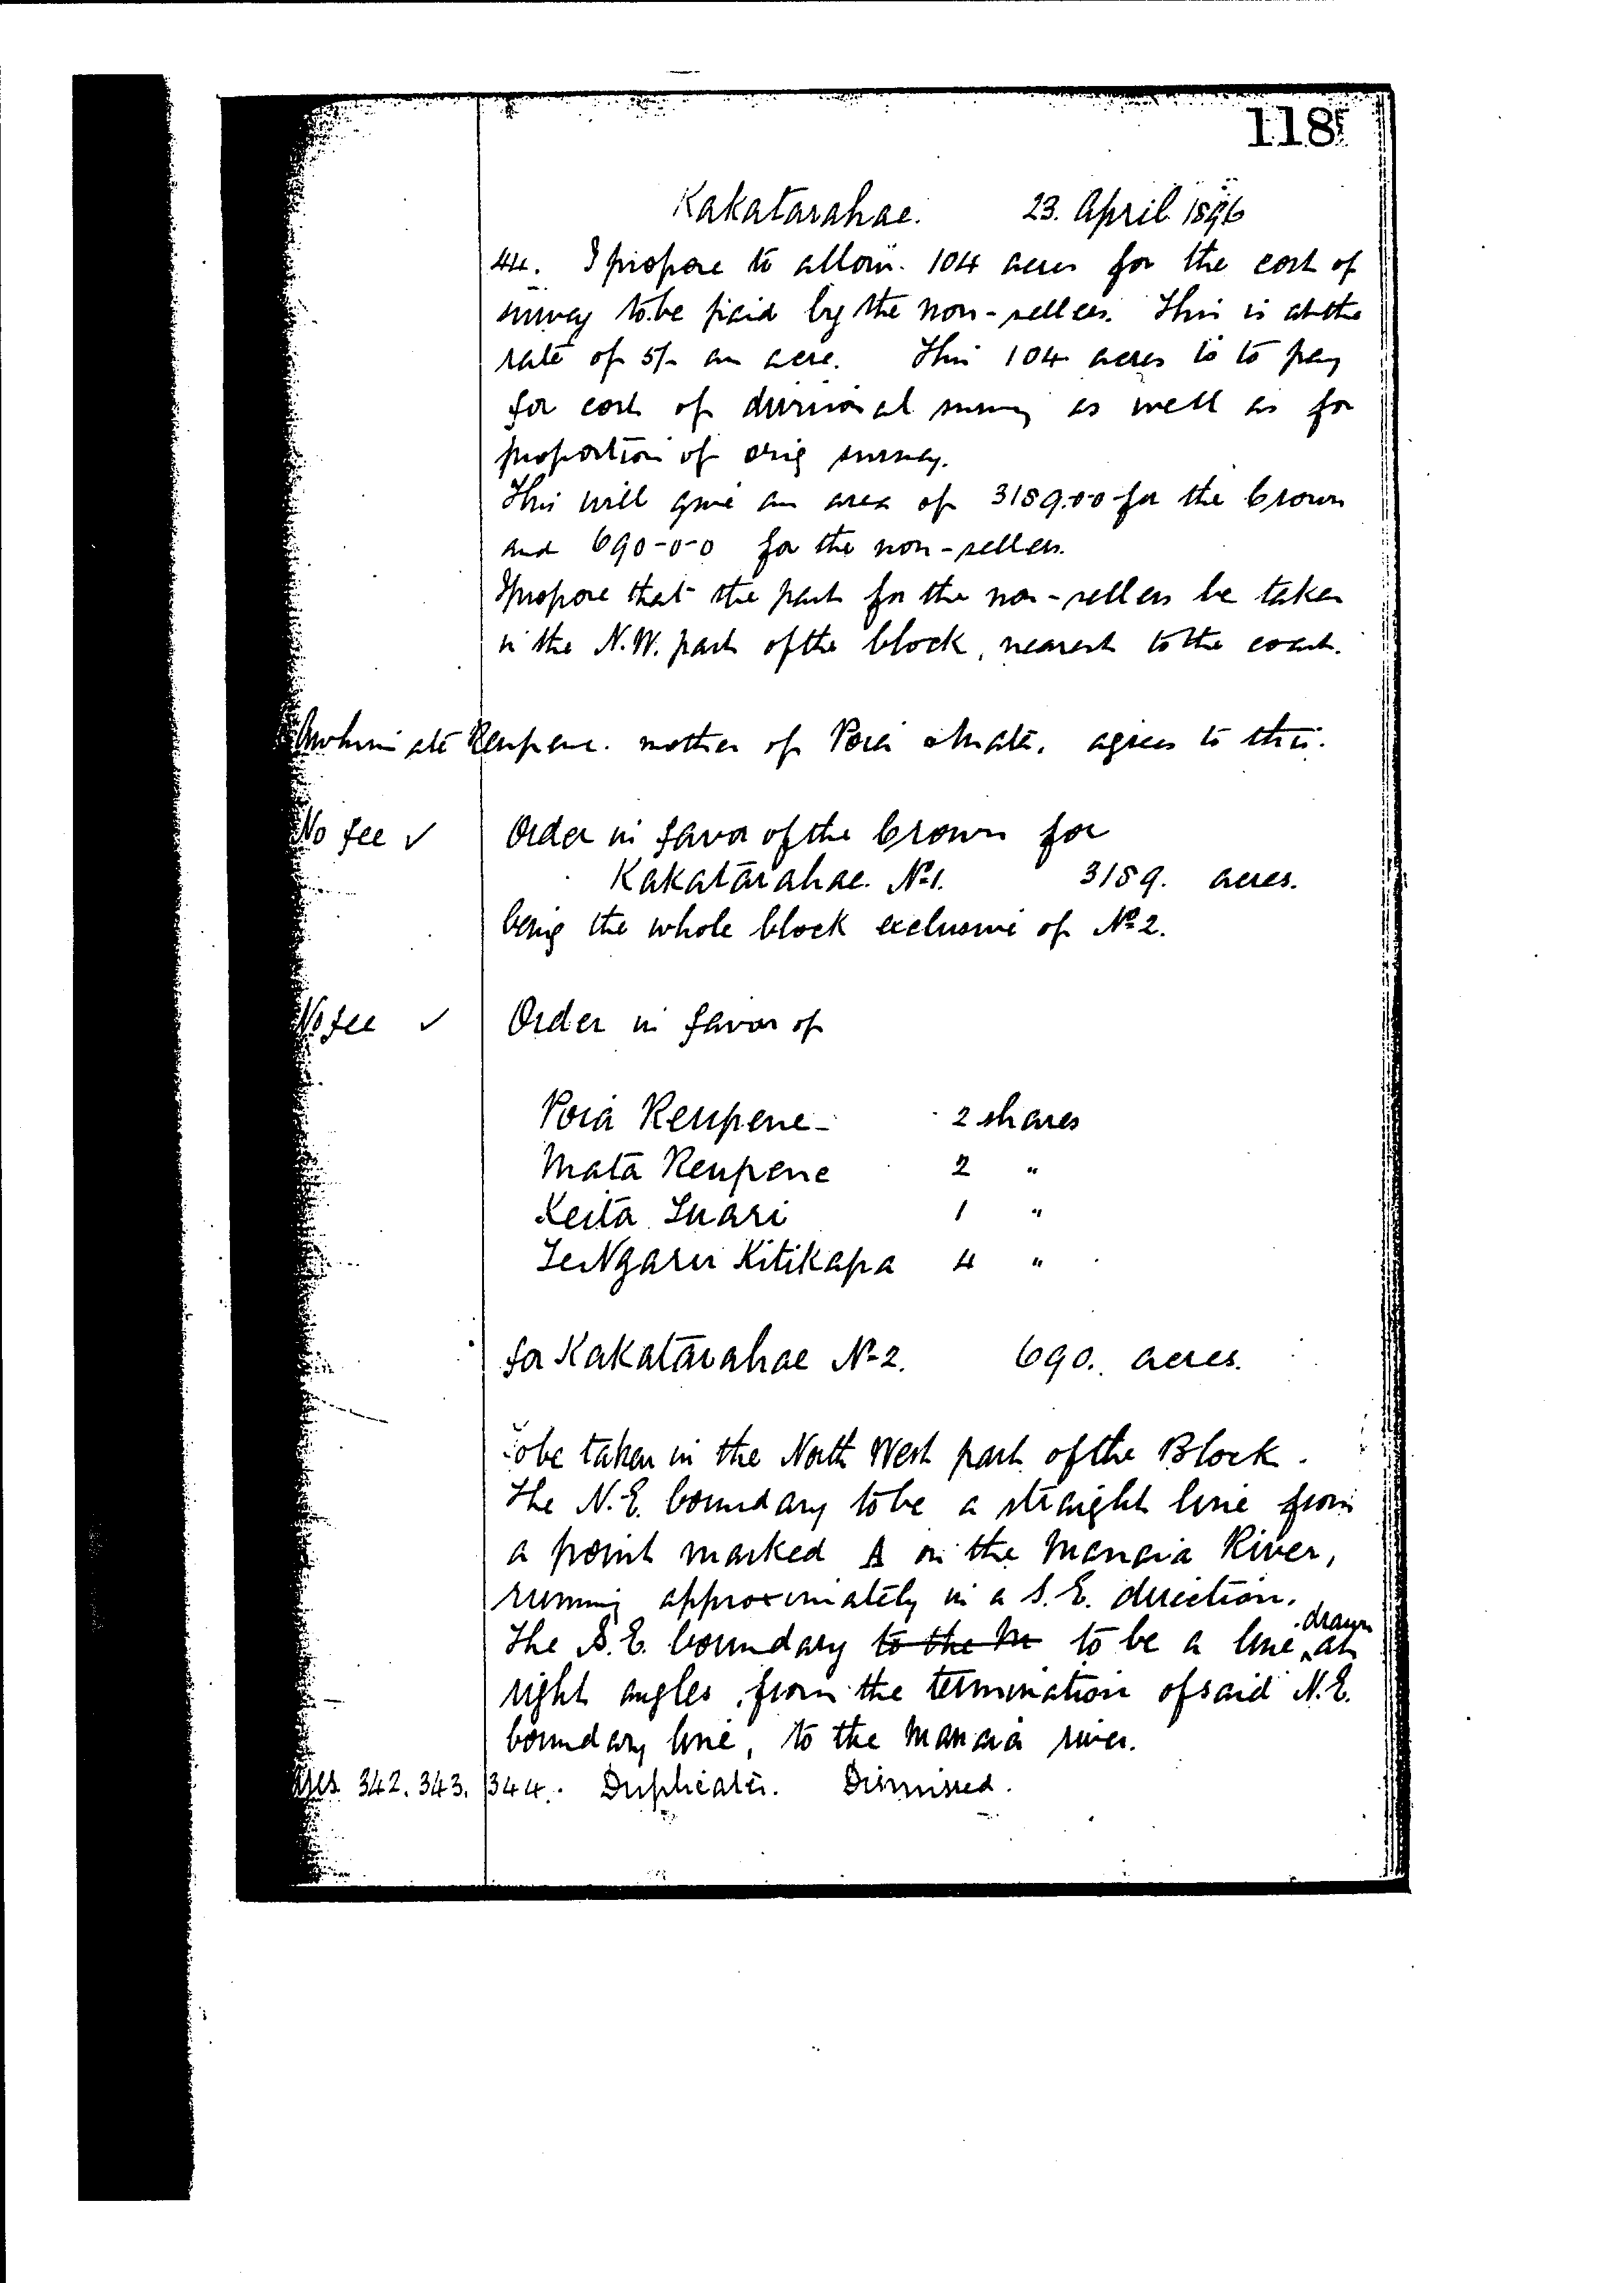 118
Kakatarahae. 23. April 1896
44. I propose to allow. 104 acres for the cost of
survey to be paid by the non-sellers. This is at the
rate of 5/- an acre. This 104 acres is to pay
for cost of divisional survey as well as for
proportion of orig survey.
This will give an area of 3189.0.0 for the Crown
and 690-0-0 for the non-sellers.
I propose that the part for the non-sellers be taken
in the N.W. part of the block, nearest to the coast.
ate Reupene. mother of Poia & Mata, agrees to this.
No fee ✓ Order in favor of the Crown for
Kakatarahae. No 1. 3189. acres.
being the whole block exclusive of No 2.
No fee ✓ Order in favor of
Poia Reupene - 2 shares
Mata Reupene 2 "
Keita Tuari 1 "
Te Ngaru Kitikapa 4 "
for Kakatarahae No 2. 690. acres.
To be taken in the North West part of the Block.
The N.E. boundary to be a straight line from
a point marked A on the Manaia River,
running approximately in a S.E. direction.
The S.E. boundary to the M to be a line drawn at
right angles, from the termination of said N.E.
boundary line, to the Manaia river.
342. 343. 344. Duplicates. Dismissed.